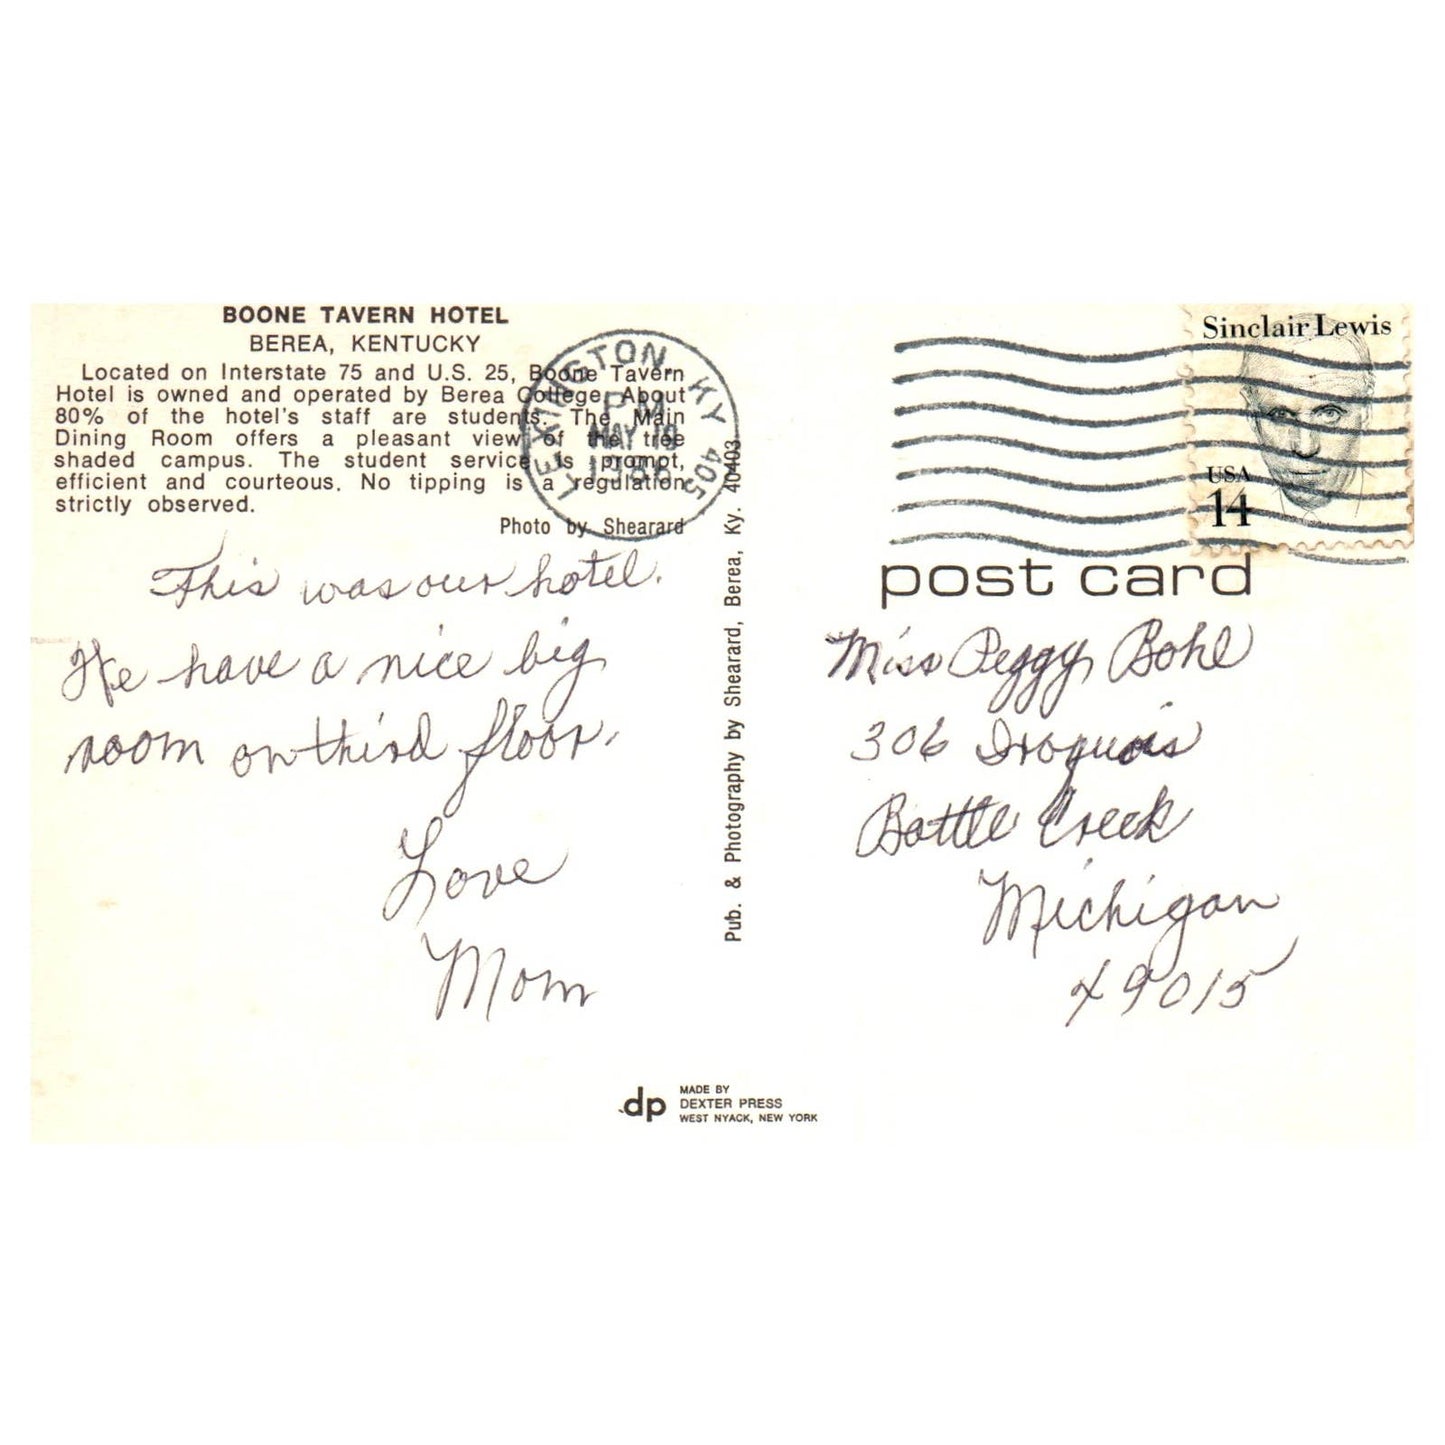 BOONE TAVERN HOTEL
BEREA, KENTUCKY
Located on Interstate 75 and U.S. 25, Boone Tavern
Hotel is owned and operated by Berea College. About
80% of the hotel's staff are students. The Main
Dining Room offers a pleasant view of the tree
shaded campus. The student service is prompt,
efficient and courteous. No tipping is a regulation
strictly observed.
Photo by Shearard
This was our hotel.
We have a nice big
room on third floor.
Love
Mom
LEXINGTON, KY 405
PM
MAY 19
1986
Pub. & Photography by Shearard, Berea, Ky. 40403
Sinclair Lewis
USA
14
post card
Miss Peggy Bohl
306 Iroquois
Battle Creek
Michigan
49015
dp
MADE BY
DEXTER PRESS
WEST NYACK, NEW YORK